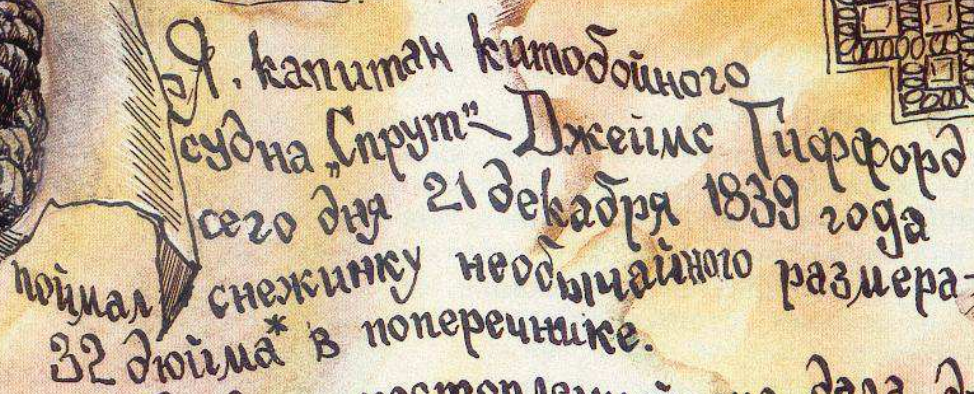 Я, капитан китобойного
судна „Спрут“ – Джеймс Гиффорд
сего дня 21 декабря 1839 года
поймал снежинку необычайного размера–
32 дюйма* в поперечнике.